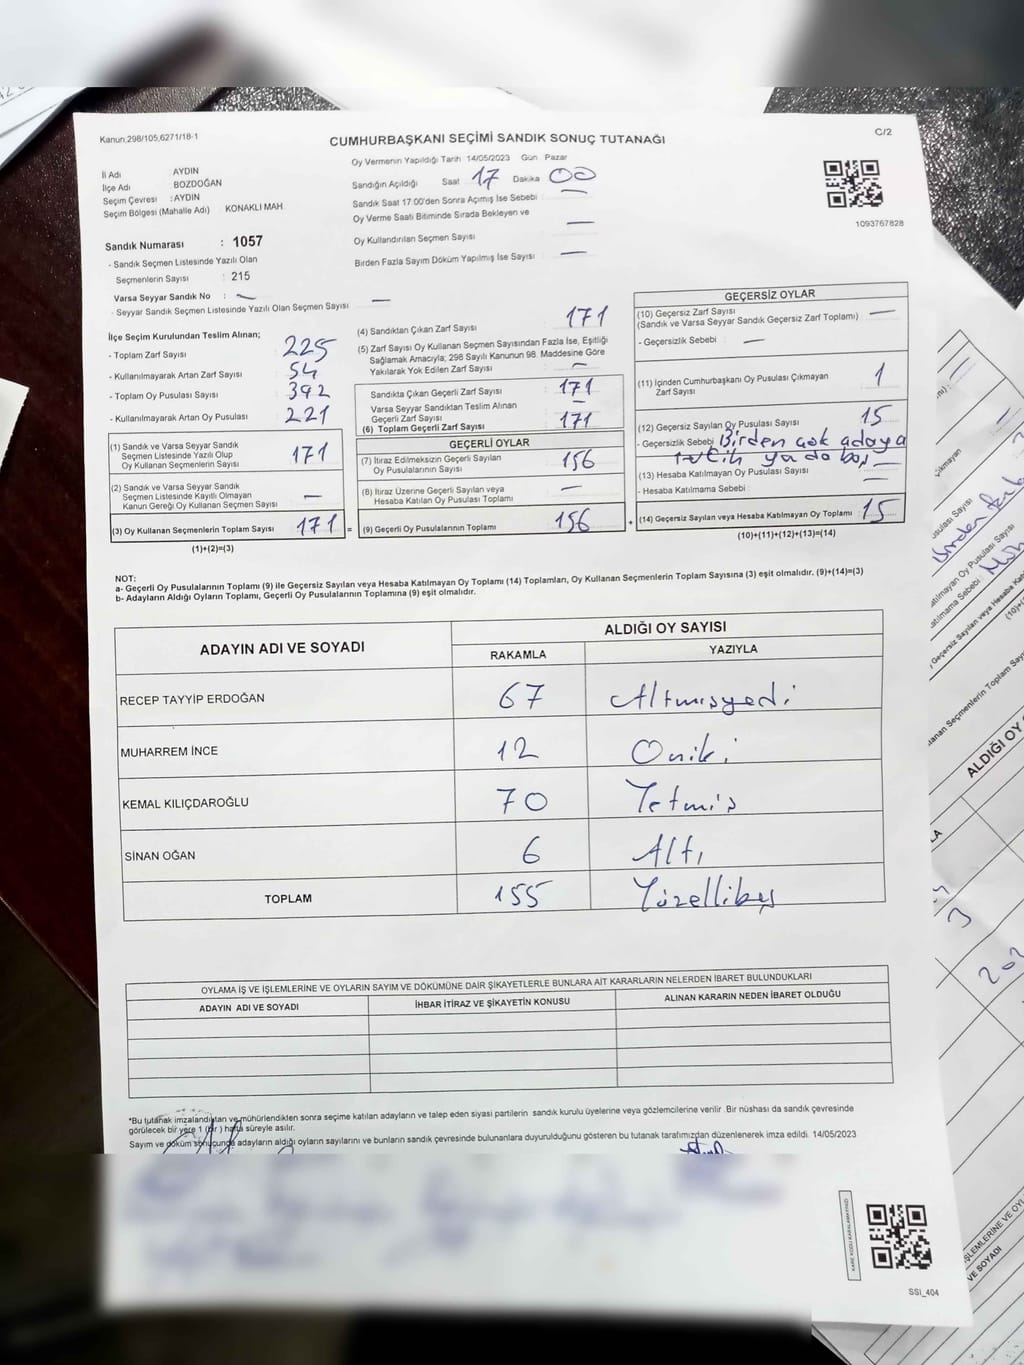 Kanun:298/105;6271/18-1
CUMHURBAŞKANI SEÇİMİ SANDIK SONUÇ TUTANAĞI
C/2
İli Adı AYDIN
İlçe Adı BOZDOĞAN
Seçim Çevresi : AYDIN
Seçim Bölgesi (Mahalle Adı) KONAKLI MAH.
Oy Vermenin Yapıldığı Tarih 14/05/2023 Gün Pazar
Sandığın Açıldığı Saat 17 Dakika 00
Sandık Saat 17:00'den Sonra Açımış İse Sebebi : —
Oy Verme Saati Bitiminde Sırada Bekleyen ve
Oy Kullandırılan Seçmen Sayısı —
Birden Fazla Sayım Döküm Yapılmış İse Sayısı —
1093767828
Sandık Numarası : 1057
- Sandık Seçmen Listesinde Yazılı Olan
Seçmenlerin Sayısı : 215
Varsa Seyyar Sandık No : —
- Seyyar Sandık Seçmen Listesinde Yazılı Olan Seçmen Sayısı —
İlçe Seçim Kurulundan Teslim Alınan;
- Toplam Zarf Sayısı 225
- Kullanılmayarak Artan Zarf Sayısı 54
- Toplam Oy Pusulası Sayısı 392
- Kullanılmayarak Artan Oy Pusulası 221
(1) Sandık ve Varsa Seyyar Sandık
Seçmen Listesinde Yazılı Olup
Oy Kullanan Seçmenlerin Sayısı 171
(2) Sandık ve Varsa Seyyar Sandık
Seçmen Listesinde Kayıtlı Olmayan
Kanun Gereği Oy Kullanan Seçmen Sayısı —
(3) Oy Kullanan Seçmenlerin Toplam Sayısı 171 =
(1)+(2)=(3)
(4) Sandıktan Çıkan Zarf Sayısı 171
(5) Zarf Sayısı Oy Kullanan Seçmen Sayısından Fazla İse, Eşitliği
Sağlamak Amacıyla; 298 Sayılı Kanunun 98. Maddesine Göre
Yakılarak Yok Edilen Zarf Sayısı —
Sandıkta Çıkan Geçerli Zarf Sayısı 171
Varsa Seyyar Sandıktan Teslim Alınan
Geçerli Zarf Sayısı —
(6) Toplam Geçerli Zarf Sayısı 171
GEÇERLİ OYLAR
(7) İtiraz Edilmeksizin Geçerli Sayılan
Oy Pusulalarının Sayısı 156
(8) İtiraz Üzerine Geçerli Sayılan veya
Hesaba Katılan Oy Pusulası Toplamı —
(9) Geçerli Oy Pusulalarının Toplamı 156 +
GEÇERSİZ OYLAR
(10) Geçersiz Zarf Sayısı —
(Sandık ve Varsa Seyyar Sandık Geçersiz Zarf Toplamı)
- Geçersizlik Sebebi : —
(11) İçinden Cumhurbaşkanı Oy Pusulası Çıkmayan
Zarf Sayısı 1
(12) Geçersiz Sayılan Oy Pusulası Sayısı 15
- Geçersizlik Sebebi : Birden çok adaya
tercih ya da boş
(13) Hesaba Katılmayan Oy Pusulası Sayısı —
- Hesaba Katılmama Sebebi : —
(14) Geçersiz Sayılan veya Hesaba Katılmayan Oy Toplamı 15
(10)+(11)+(12)+(13)=(14)
NOT:
a- Geçerli Oy Pusulalarının Toplamı (9) ile Geçersiz Sayılan veya Hesaba Katılmayan Oy Toplamı (14) Toplamları, Oy Kullanan Seçmenlerin Toplam Sayısına (3) eşit olmalıdır. (9)+(14)=(3)
b- Adayların Aldığı Oyların Toplamı, Geçerli Oy Pusulalarının Toplamına (9) eşit olmalıdır.
ADAYIN ADI VE SOYADI ALDIĞI OY SAYISI
RAKAMLA YAZIYLA
RECEP TAYYİP ERDOĞAN 67 Altmışyedi
MUHARREM İNCE 12 Oniki
KEMAL KILIÇDAROĞLU 70 Yetmiş
SİNAN OĞAN 6 Altı
TOPLAM 155 Yüzellibeş
OYLAMA İŞ VE İŞLEMLERİNE VE OYLARIN SAYIM VE DÖKÜMÜNE DAİR ŞİKAYETLERLE BUNLARA AİT KARARLARIN NELERDEN İBARET BULUNDUKLARI
ADAYIN ADI VE SOYADI İHBAR İTİRAZ VE ŞİKAYETİN KONUSU ALINAN KARARIN NEDEN İBARET OLDUĞU
*Bu tutanak imzalandıktan ve mühürlendikten sonra seçime katılan adayların ve talep eden siyasi partilerin sandık kurulu üyelerine veya gözlemcilerine verilir. Bir nüshası da sandık çevresinde
görülecek bir yere 1 (bir) hafta süreyle asılır.
Sayım ve döküm sonucunda adayların aldığı oyların sayılarını ve bunların sandık çevresinde bulunanlara duyurulduğunu gösteren bu tutanak tarafımızdan düzenlenerek imza edildi. 14/05/2023
SSI_404
ALDIĞI OY
3
202